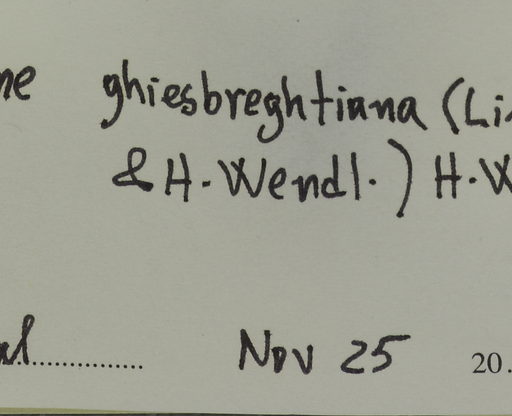 ne ghiesbreghtiana (Li
& H. Wendl.) H. W
al............... Nov 25 20.